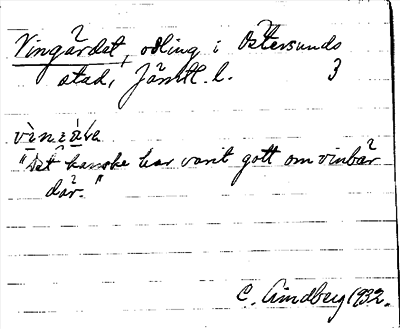 Vingårdet, odling i Östersunds
stad, Jämtl. l. 3
"Det kanske har varit gott om vinbär
där."
C. Lindberg 1932.